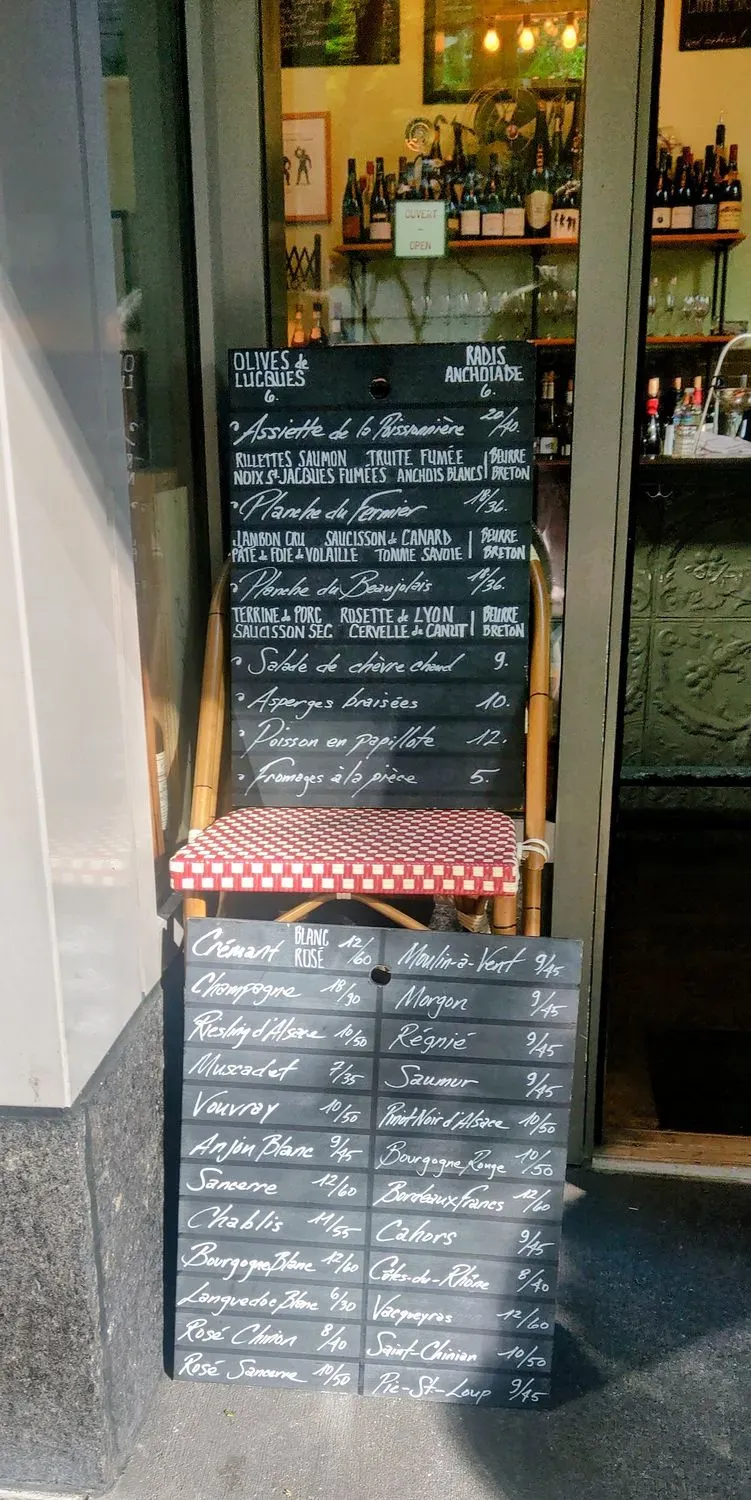 OUVERT
-
OPEN
OLIVES de LUCQUES 6.
RADIS ANCHOIADE 6.
Assiette de la Poissonnière 20/40.
RILLETTES SAUMON TRUITE FUMÉE | BEURRE
NOIX St-JACQUES FUMÉES ANCHOIS BLANCS | BRETON
Planche du Fermier 18/36.
JAMBON CRU SAUCISSON de CANARD | BEURRE
PÂTÉ de FOIE de VOLAILLE TOMME SAVOIE | BRETON
Planche du Beaujolais 18/36.
TERRINE de PORC ROSETTE de LYON | BEURRE
SAUCISSON SEC CERVELLE de CANUT | BRETON
Salade de chèvre chaud 9.
Asperges braisées 10.
Poisson en papillote 12.
Fromages à la pièce 5.
Crémant BLANC ROSÉ 12/60
Champagne 18/90
Riesling d'Alsace 10/50
Muscadet 7/35
Vouvray 10/50
Anjou Blanc 9/45
Sancerre 12/60
Chablis 11/55
Bourgogne Blanc 12/60
Languedoc Blanc 6/30
Rosé Chinon 8/40
Rosé Sancerre 10/50
Moulin-à-Vent 9/45
Morgon 9/45
Régnié 9/45
Saumur 9/45
Pinot Noir d'Alsace 10/50
Bourgogne Rouge 10/50
Bordeaux Francs 12/60
Cahors 9/45
Côtes-du-Rhône 8/40
Vacqueyras 12/60
Saint-Chinian 10/50
Pic-St-Loup 9/45